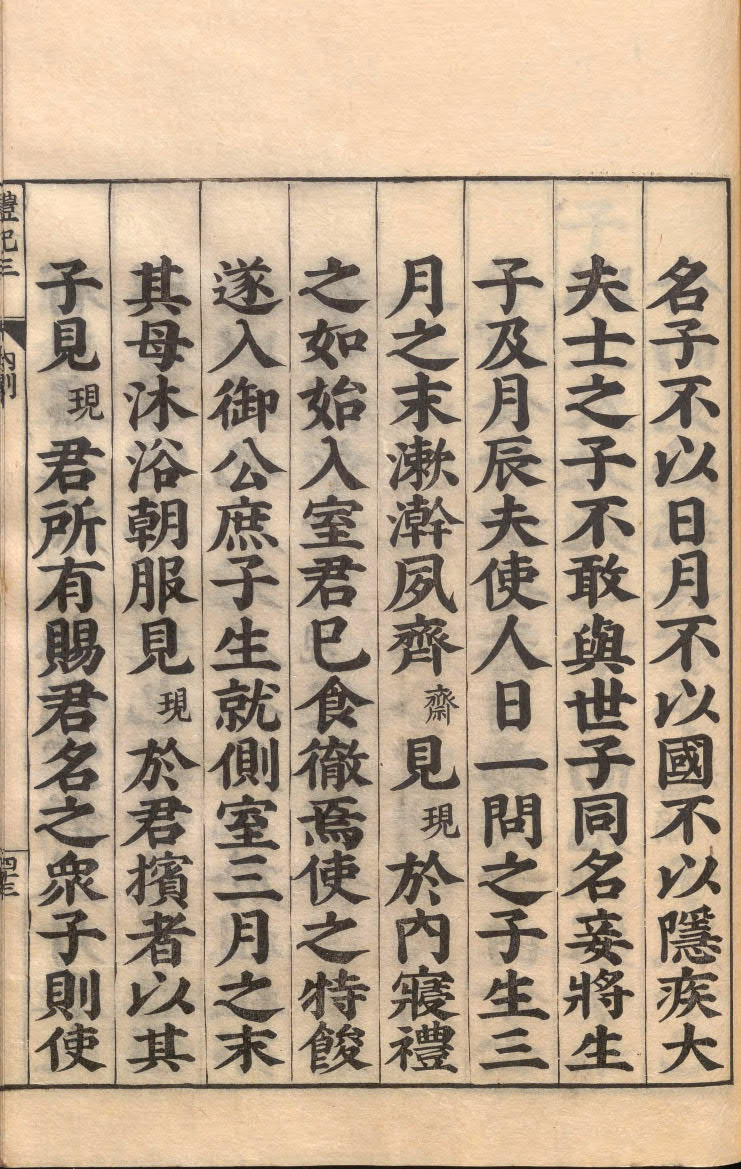 名子不以日月不以國不以隱疾大
夫士之子不敢與世子同名妾將生
子及月辰夫使人日一問之子生三
月之末漱澣夙齊齋見現於內寢禮
之如始入室君已食徹焉使之特餕
遂入御公庶子生就側室三月之末
其母沐浴朝服見現於君擯者以其
子見現君所有賜君名之衆子則使
禮記三
內則